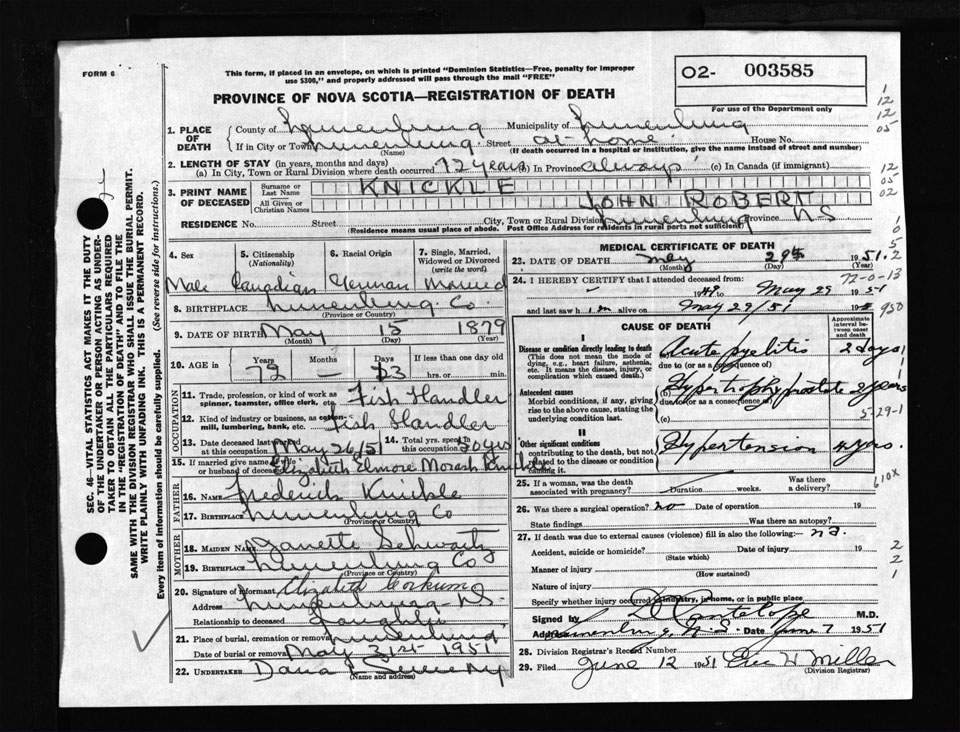 FORM 6
This form, if placed in an envelope, on which is printed "Dominion Statistics—Free, penalty for improper
use $300," and properly addressed will pass through the mail "FREE"
O2- 003585
For use of the Department only
PROVINCE OF NOVA SCOTIA—REGISTRATION OF DEATH
1. PLACE OF DEATH
County of Lunenburg Municipality of Lunenburg
If in City or Town Lunenburg Street at home House No.
(Name) (If death occurred in a hospital or institution, give the name instead of street and number)
2. LENGTH OF STAY (in years, months and days)
(a) In City, Town or Rural Division where death occurred 72 years (b) In Province always (c) In Canada (if immigrant)
3. PRINT NAME OF DECEASED
Surname or Last Name KNICKLE
All Given or Christian Names JOHN ROBERT
RESIDENCE No. Street City, Town or Rural Division Lunenburg Province N S
(Residence means usual place of abode. Post Office Address for residents in rural parts not sufficient)
4. Sex Male
5. Citizenship (Nationality) Canadian
6. Racial Origin German
7. Single, Married, Widowed or Divorced (write the word) Married
8. BIRTHPLACE Lunenburg Co.
(Province or Country)
9. DATE OF BIRTH May 15 1879
(Month) (Day) (Year)
10. AGE in Years 72 Months Days 13 If less than one day old hrs. or min.
OCCUPATION
11. Trade, profession, or kind of work as spinner, teamster, office clerk, etc. Fish Handler
12. Kind of industry or business, as cotton-mill, lumbering, bank, etc. Fish Handler
13. Date deceased last worked at this occupation May 26/51
14. Total yrs. spent in this occupation 30 yrs
15. If married give name of wife or husband of deceased Elizabeth Elmore Morash Knickle
FATHER
16. NAME Frederick Knickle
17. BIRTHPLACE Lunenburg Co
(Province or Country)
MOTHER
18. MAIDEN NAME Janette Schwartz
19. BIRTHPLACE Lunenburg Co
(Province or Country)
20. Signature of informant Elizabeth Corkum
Address Lunenburg N.S.
Relationship to deceased Daughter
21. Place of burial, cremation or removal Lunenburg
Date of burial or removal May 31st 1951
22. UNDERTAKER
(Name and Address)
MEDICAL CERTIFICATE OF DEATH
23. DATE OF DEATH May 29th 1951
(Month) (Day) (Year)
72-0-13
24. I HEREBY CERTIFY that I attended deceased from:
1949 to May 29 1951
and last saw him alive on May 29/51 19
CAUSE OF DEATH
Approximate interval between onset and death
I
Disease or condition directly leading to death
(This does not mean the mode of dying, e.g., heart failure, asthenia, etc. It means the disease, injury, or complication which caused death.)
(a) Acute pyelitis 2 days
due to (or as a consequence of)
Antecedent causes
Morbid conditions, if any, giving rise to the above cause, stating the underlying condition last.
(b) Hypertrophy prostate 2 years
due to (or as a consequence of)
(c)
II
Other significant conditions
contributing to the death, but not related to the disease or condition causing it.
Hypertension 4 yrs.
610x
25. If a woman, was the death associated with pregnancy? Duration weeks. Was there a delivery?
26. Was there a surgical operation? no Date of operation 19
State findings Was there an autopsy?
27. If death was due to external causes (violence) fill in also the following:— na.
Accident, suicide or homicide? Date of injury 19
(State which)
Manner of injury
(How sustained)
Nature of injury
Specify whether injury occurred in industry, in home, or in public place
Signed by M.D.
Address Lunenburg, N.S. Date June 7 1951
28. Division Registrar's Record Number
29. Filed June 12 1951
(Division Registrar)
SEC. 46—VITAL STATISTICS ACT MAKES IT THE DUTY
OF THE UNDERTAKER OR PERSON ACTING AS UNDER-
TAKER TO OBTAIN ALL THE PARTICULARS REQUIRED
IN THE "REGISTRATION OF DEATH" AND TO FILE THE
SAME WITH THE DIVISION REGISTRAR WHO SHALL ISSUE THE BURIAL PERMIT.
WRITE PLAINLY WITH UNFADING INK. THIS IS A PERMANENT RECORD.
Every item of information should be carefully supplied. (See reverse side for instructions.)